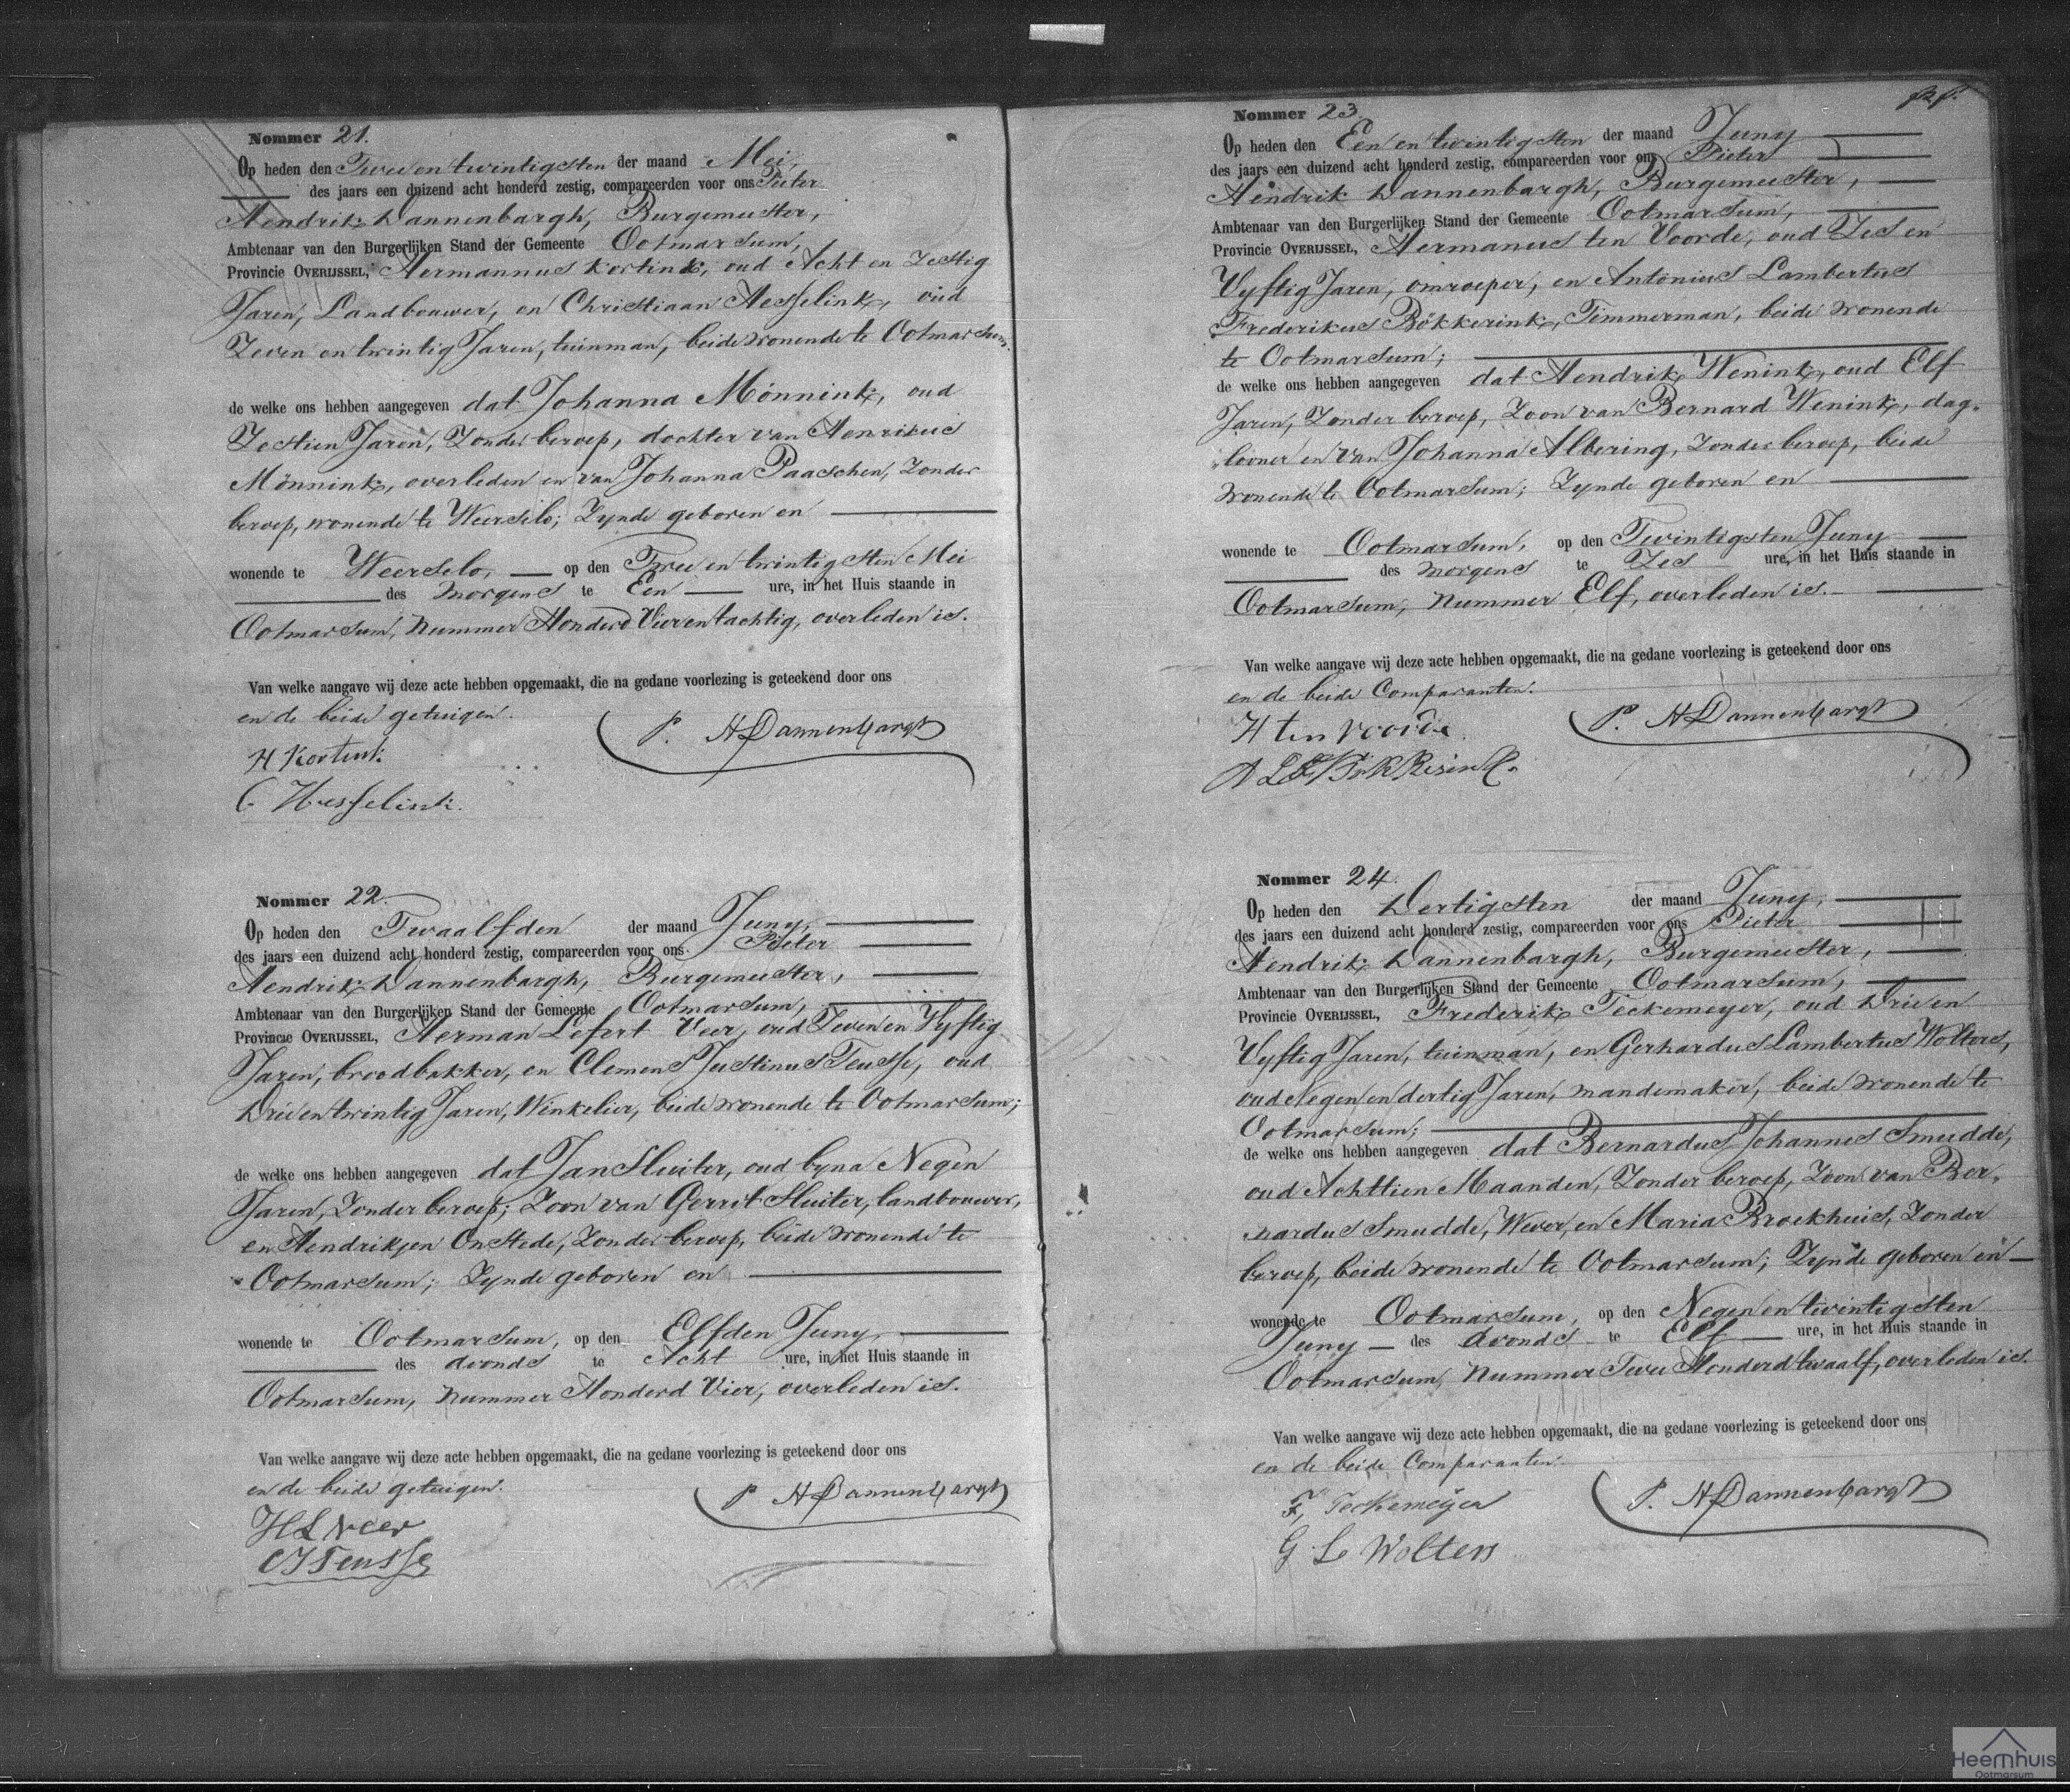 Nommer 21.
Op heden den Twee en twintigsten der maand Mei,
des jaars een duizend acht honderd zestig, compareerden voor ons Pieter
Hendrik Dannenbargh, Burgemeester,
Ambtenaar van den Burgerlijken Stand der Gemeente Ootmarsum,
Provincie OVERIJSSEL, Hermannus Kortink, oud Acht en Zestig
Jaren, Landbouwer, en Christiaan Hesselink, oud
Zeven en twintig Jaren, tuinman, beide wonende te Ootmarsum.
de welke ons hebben aangegeven dat Johanna Mönnink, oud
Zestien Jaren, Zonder beroep, dochter van Henrikus
Mönnink, overleden en van Johanna Paaschen, Zonder
beroep, wonende te Weerselo; Zynde geboren en
wonende te Weerselo, op den Twee en twintigsten Mei
des morgens te Een ure, in het Huis staande in
Ootmarsum, nummer Honderd Vier en tachtig, overleden is.
Van welke aangave wij deze acte hebben opgemaakt, die na gedane voorlezing is geteekend door ons
en de beide getuigen.
P. H Dannenbargh
H Kortink
C Hesselink.
Nommer 22.
Op heden den Twaalfden der maand Juny,
des jaars een duizend acht honderd zestig, compareerden voor ons Pieter
Hendrik Dannenbargh, Burgemeester,
Ambtenaar van den Burgerlijken Stand der Gemeente Ootmarsum,
Provincie OVERIJSSEL, Herman Lefert Veer, oud Zeven en Vyftig
Jaren, broodbakker, en Clemens Justinus Teusse, oud
Drie en twintig Jaren, Winkelier, beide wonende te Ootmarsum;
de welke ons hebben aangegeven dat Jan Sluiter, oud byna Negen
Jaren, Zonder beroep; Zoon van Gerrit Sluiter, landbouwer,
en Hendrikjen Onstede, Zonder beroep, beide wonende te
Ootmarsum; Zynde geboren en
wonende te Ootmarsum, op den Elfden Juny,
des avonds te Acht ure, in het Huis staande in
Ootmarsum, nummer Honderd Vier, overleden is.
Van welke aangave wij deze acte hebben opgemaakt, die na gedane voorlezing is geteekend door ons
en de beide getuigen.
P H Dannenbargh
H L Veer
C J Teusse
Nommer 23
Op heden den Een en twintigsten der maand Juny
des jaars een duizend acht honderd zestig, compareerden voor ons Pieter
Hendrik Dannenbargh, Burgemeester,
Ambtenaar van den Burgerlijken Stand der Gemeente Ootmarsum,
Provincie OVERIJSSEL, Hermanus ten Voorde, oud Zes en
Vyftig Jaren, omroeper, en Antonius Lambertus
Frederikus Bökkerink, Timmerman, beide wonende
te Ootmarsum;
de welke ons hebben aangegeven dat Hendrik Wenink, oud Elf
Jaren, Zonder beroep, Zoon van Bernard Wenink, dag-
looner en van Johanna Albering, Zonder beroep, beide
wonende te Ootmarsum; Zynde geboren en
wonende te Ootmarsum, op den Twintigsten Juny
des morgens te Zes ure, in het Huis staande in
Ootmarsum, nummer Elf, overleden is.
Van welke aangave wij deze acte hebben opgemaakt, die na gedane voorlezing is geteekend door ons
en de beide Comparanten.
P. H Dannenbargh
H ten voorde
Nommer 24.
Op heden den Dertigsten der maand Juny,
des jaars een duizend acht honderd zestig, compareerden voor ons Pieter
Hendrik Dannenbargh, Burgemeester,
Ambtenaar van den Burgerlijken Stand der Gemeente Ootmarsum,
Provincie OVERIJSSEL, Frederik Teckemeyer, oud Drie en
Vyftig Jaren, tuinman, en Gerhardus Lambertus Wolters,
oud Negen en dertig Jaren, mandemaker, beide wonende te
Ootmarsum;
de welke ons hebben aangegeven dat Bernardus Johannes Smudde,
oud Achttien Maanden, Zonder beroep, Zoon van Ber-
nardus Smudde, Wever, en Maria Broekhuis, Zonder
beroep, beide wonende te Ootmarsum; Zynde geboren en
wonende te Ootmarsum, op den Negen en twintigsten
Juny des avonds te Elf ure, in het Huis staande in
Ootmarsum, nummer Twee Honderd twaalf, overleden is.
Van welke aangave wij deze acte hebben opgemaakt, die na gedane voorlezing is geteekend door ons
en de beide Comparanten.
P. H Dannenbargh
F, Teckemeijer
G L Wolters
Heemhuis
Ootmarsum